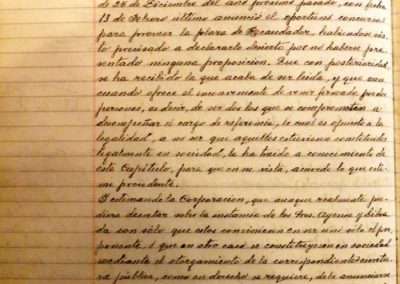 de 26 de Diciembre del año próximo pasado, con fecha
13 de Febrero último anunció el oportuno concurso
para proveer la plaza de Recaudador, habiéndose vis-
to precisado a declararlo desierto por no haberse pre-
sentado ninguna proposición. Que con posterioridad
se ha recibido la que acaba de ser leida, y que aun
cuando ofrece el inconveniente de venir firmada por dos
personas, es decir, de ser dos los que se comprometen a
desempeñar el cargo de referencia, lo cual es opuesto a la
legalidad, a no ser que aquellos estuviesen constituidos
legalmente en sociedad, la ha traido a conocimiento de
este Capítulo, para que en su vista, acuerde lo que esti-
me procedente.
Y estimando la Corporación, que aunque realmente pu-
diera decretar sobre la instancia de los Sres. Ayerra y
da con sólo que estos conviniesen en ser uno sólo el pro-
ponente, ó que en otro caso se constituyesen en sociedad
mediante el otorgamiento de la correspondiente escritu-
ra pública, como en derecho se requiere, debe anunciarse